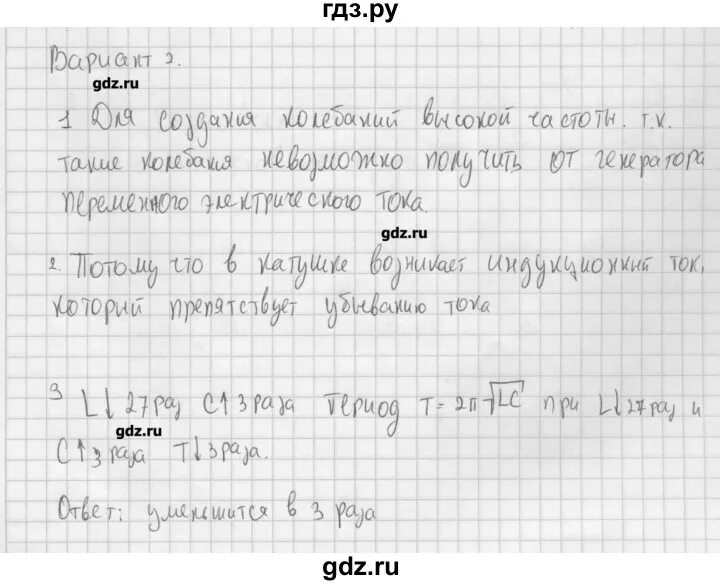 гдз.ру
Вариант 2.
gdz.ru
1 Для создания колебаний высокой частоты. т.к.
такие колебания невозможно получить от генератора
переменного электрического тока.
gdz.ru
2. Потому что в катушке возникает индукционный ток,
который препятствует убыванию тока
3 L↓ 27 раз C↑ 3 раза период T = 2π√LC при L↓ 27 раз и
gdz.ru
C↑ 3 раза T↓ 3 раза.
Ответ: уменьшится в 3 раза
gdz.ru